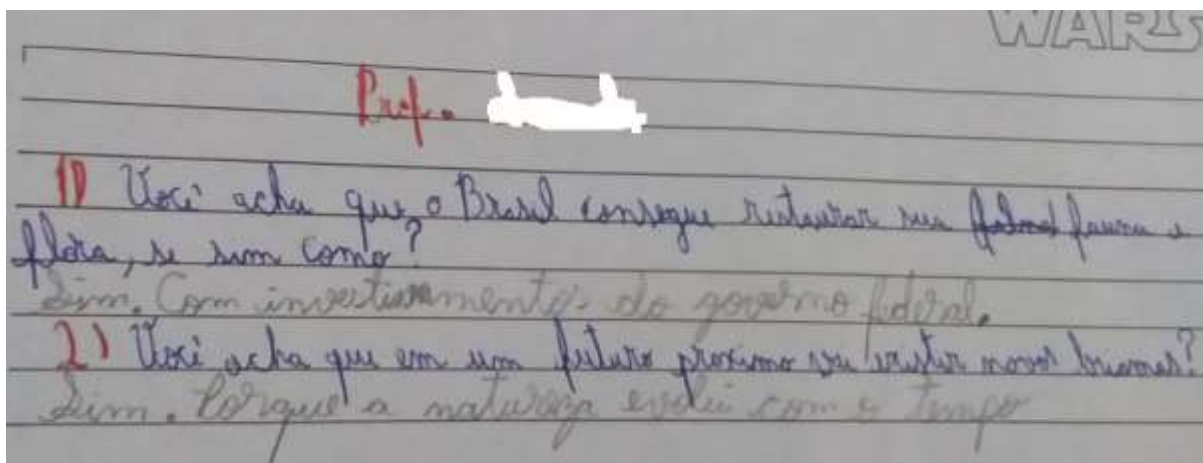 WARS
Prof.
1) Você acha que o Brasil consegue restaurar sua fauna e
flora, se sim como?
Sim. Com investimento do governo federal.
2) Você acha que em um futuro proximo vai existir novos biomas?
Sim. Porque a natureza evolui com o tempo